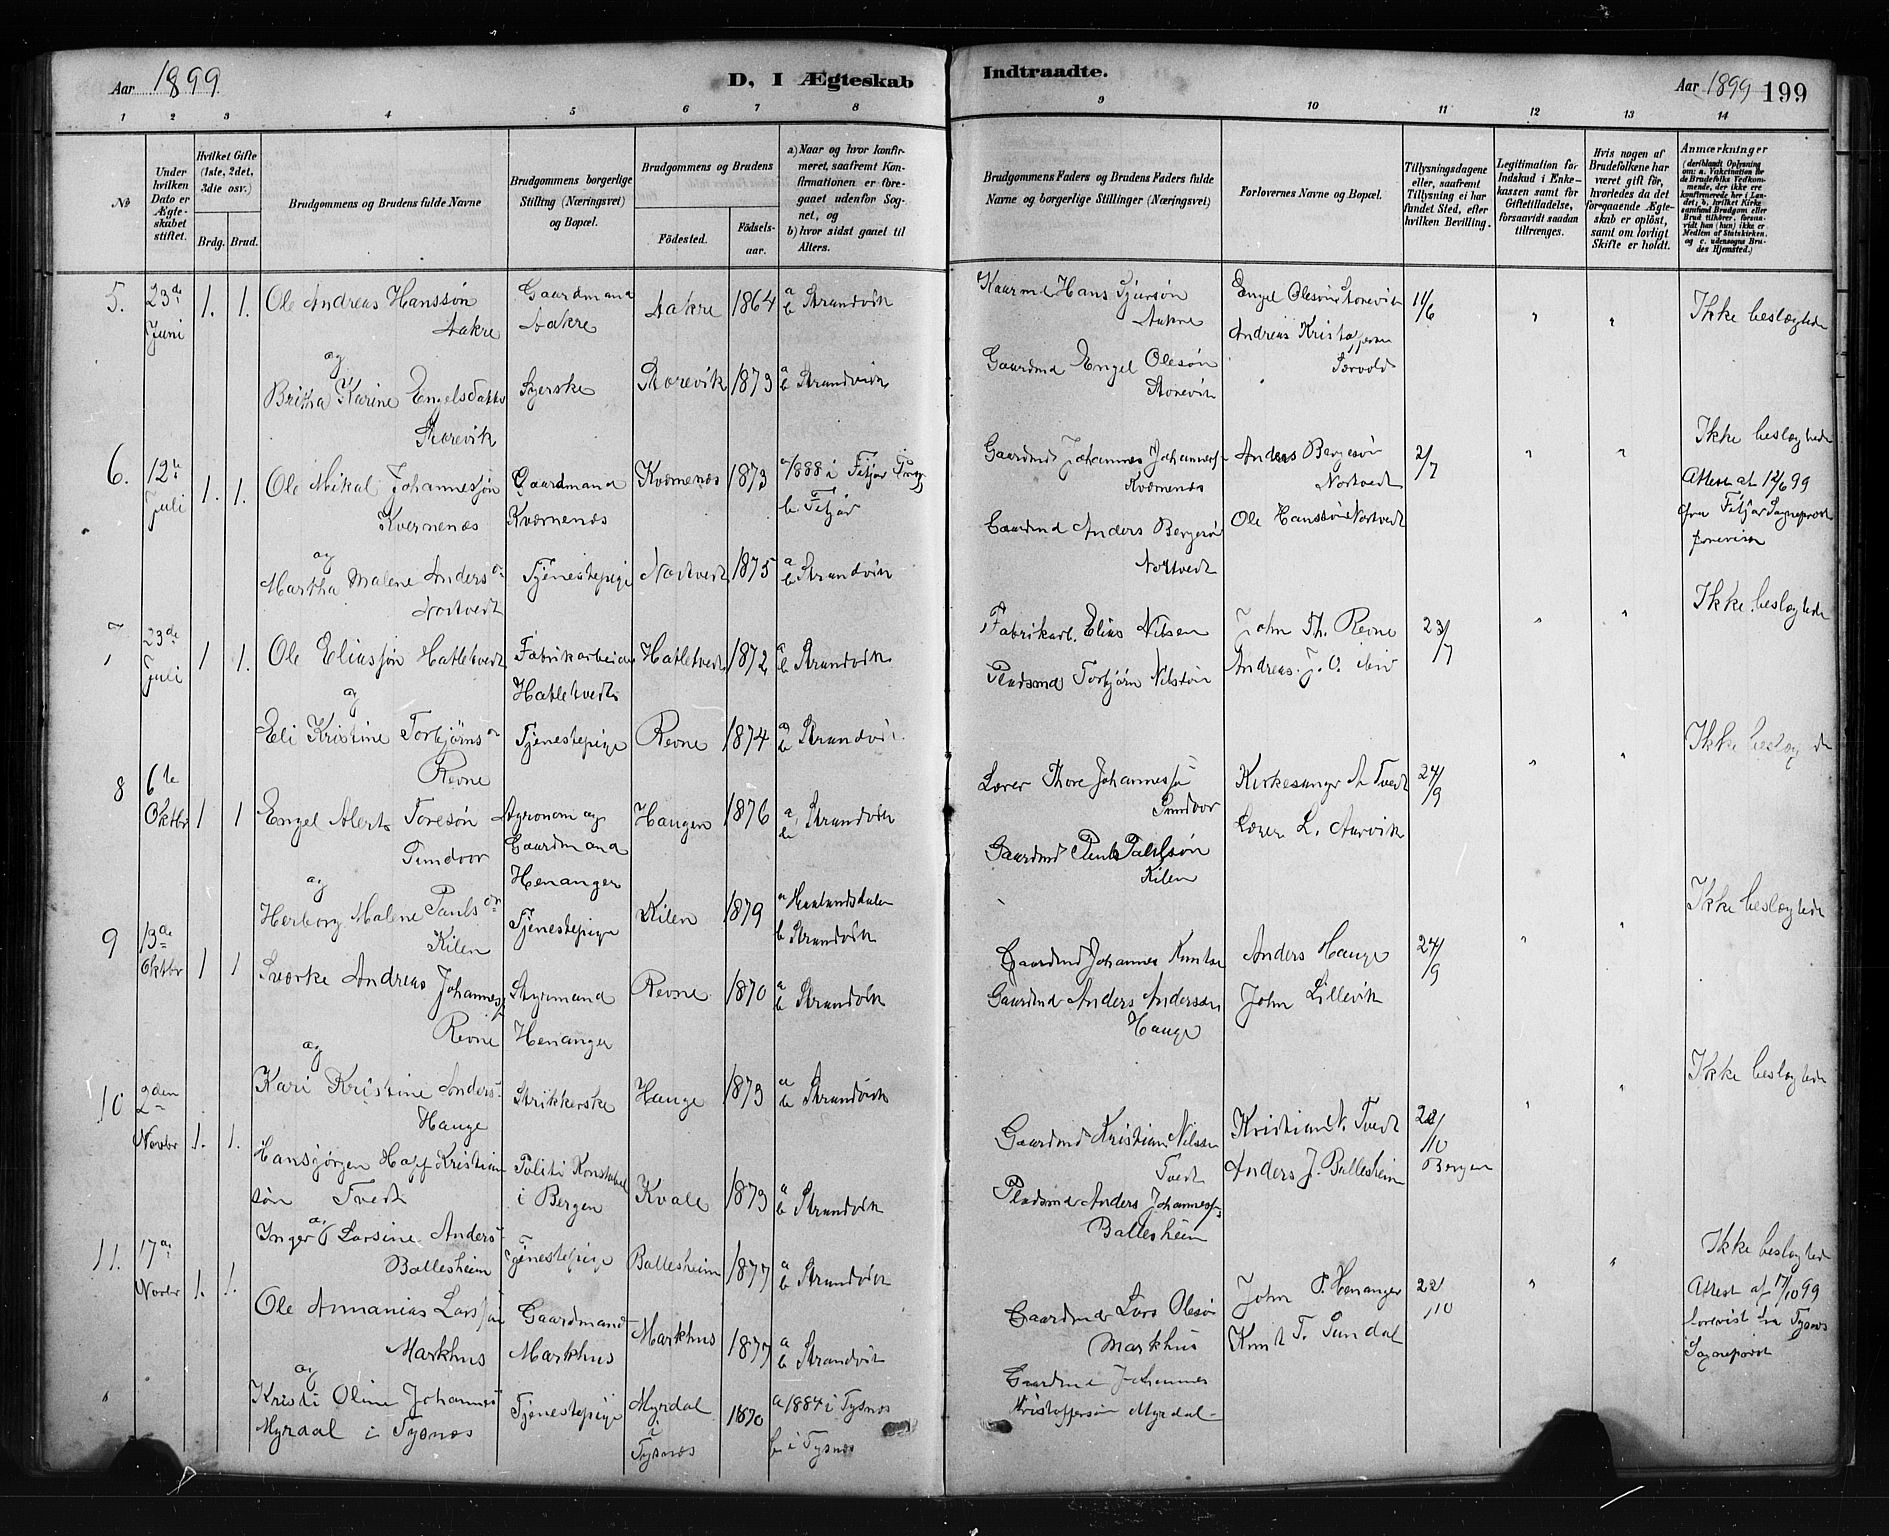 Aar 1899
D, I Ægteskab
Indtraadte.
Aar 1899 199
1 2 3 4 5 6 7 8 9 10 11 12 13 14
No
Under hvilken Dato er Ægteskabet stiftet.
Hvilket Gifte (1ste, 2det, 3die osv.)
Brdg. Brud.
Brudgommens og Brudens fulde Navne
Brudgommens borgerlige Stilling (Næringsvei) og Bopæl.
Brudgommens og Brudens
Fødested.
Fødselsaar.
a) Naar og hvor konfirmeret, saafremt Konfirmationen er foregaaet udenfor Sognet, og
b) hvor sidst gaaet til Alters.
Brudgommens Faders og Brudens Faders fulde Navne og borgerlige Stillinger (Næringsvei)
Forlovernes Navne og Bopæl.
Tillysningsdagene eller, saafremt Tillysning ei har fundet Sted, efter hvilken Bevilling.
Legitimation for Indskud i Enkekassen samt for Giftetilladelse, forsaavidt saadan tiltrænges.
Hvis nogen af Brudefolkene har været gift før, hvorledes da det foregaaende Ægteskab er opløst, samt om lovligt Skifte er holdt.
Anmærkninger
(deriblandt Oplysning om: a. Vakcination for de Brudefolks Vedkommende, der ikke ere konfirmerede her i Landet; b. hvilket Kirkesamfund Brudgom eller Brud tilhører, forsaavidt han (hun) ikke er Medlem af Statskirken, og c. udensogns Brudes Hjemsted.)
5. 23de Juni 1. 1.
Ole Andreas Hanssøn Aakre
Gaardmand Aakre
Aakre 1864 a b Strandvik
Hans
Aakre
Engel Olesøn Storevik
11/6 " "
Andreas
Ikke beslægtede
og
Britha Karine Engelsdatter Storevik
Syerske
Storevik 1873 a b Strandvik
Gaardmd Engel Olesøn Storevik
6. 12te Juli 1. 1.
Ole Mikal Johannessøn Kvernenæs
Gaardmand Kværnenæs
Kværnenæs 1873 a 1888 i Fitjar b Fitjar
Gaardmd Johannes Johanness. Kværnenæs
Anders Bergesøn Nortvedt
2/7 " "
Ikke beslægtede
Attest af 12/6 99 fra Fitjar Sogneprest
Ole Hanssøn Nortvedt
og
Martha Malene Andersdr Nortvedt
Tjenestepige
Nortvedt 1875 a b Strandvik
Gaardmd Anders Bergesøn Nortvedt
7 23de Juli 1 1.
Ole Eliassøn Hatletvedt
Fabrikarbeider Hatletvedt
Hatletvedt 1872 a b Strandvik
Fabrikarb. Elias Nilsen
John Th. Revne
23/7 " "
Ikke beslægtede
Pladsmd Torbjørn Nilssøn
Andreas J. O.
og
Eli Kristine Torbjørnsdr Revne
Tjenestepige
Revne 1874 a b Strandvik
8 6te Oktbr 1 1
Engel Alert Toresøn Sundvor
Agronom og Gaardmand Henanger
Haugen 1876 a b Strandvik
Lærer Thore Johannessøn Sundvor
Kirkesanger A. Tvedt
24/9 " "
Ikke beslægtede
Lærer L. Aarvik
og
Herborg Malene Paulsdr Kilen
Tjenestepige
Kilen 1879 a Haalandsdalen b Strandvik
Gaardmd Paul Paulsøn Kilen
9 13de Oktbr 1 1
Sværke Andreas Johanness. Revne
Styrmand Henanger
Revne 1870 a b Strandvik
Gaardmd Johannes Knutsen
Anders Hauge
24/9 " "
Ikke beslægtede
Gaardmd Anders Andersen Hauge
John Lillevik
og
Kari Kristine Andersdr Hauge
Strikkerske
Hauge 1873 a b Strandvik
10 2den Novbr 1. 1.
Hansjørgen Kristiansøn Tvedt
Politi Konstabel i Bergen
Kvale 1873 a b Strandvik
Gaardmd Kristian Nilssen Tvedt
Kristian N. Tvedt
22/10 Bergen " "
Ikke beslægtede
Pladsmd Anders Johanness. Ballesheim
Anders J. Ballesheim
og
Inger Larsine Andersdr Ballesheim
Tjenestepige
Ballesheim 1877 a b Strandvik
11. 17de Novbr 1. 1.
Ole Annanias Larssøn Markhus
Gaardmand Markhus
Markhus 1877 a b Strandvik
Gaardmd Lars Olesøn Markhus
John P. Henanger
22/10 " "
Ikke beslægtede
Attest af 17/10 99 forevist fra Tysnæs Sogneprest
Knut T. Sundal
og
Kristi Oline Johannesdr Myrdal i Tysnæs
Tjenestepige
Myrdal i Tysnæs 1870 a 1884 i Tysnæs b i Tysnæs
Gaardmd Johannes Kristoffersøn Myrdal